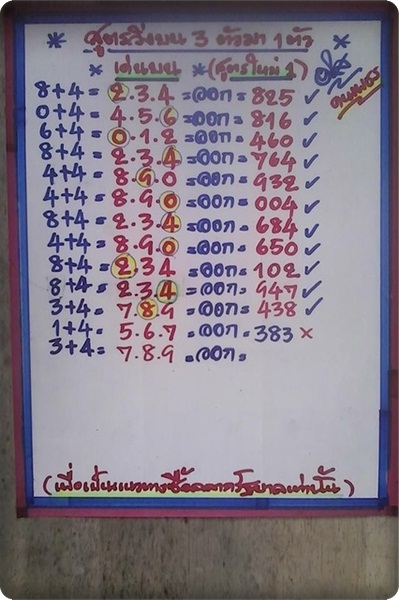 * สูตรวิ่งบน 3 ตัวมา 1 ตัว *
* เด่นบน * (สูตรใหม่ 1)
คนเมือง
8+4= 2.3.4 =ออก= 825 ✓
0+4= 4.5.6 =ออก= 816 ✓
6+4= 0.1.2 =ออก= 460 ✓
8+4= 2.3.4 =ออก= 764 ✓
4+4= 8.9.0 =ออก= 932 ✓
4+4= 8.9.0 =ออก= 004 ✓
8+4= 2.3.4 =ออก= 684 ✓
4+4= 8.9.0 =ออก= 650 ✓
8+4= 2.34 =ออก= 102 ✓
8+4= 2.3.4 =ออก= 947 ✓
3+4= 789 =ออก= 438 ✓
1+4= 5.6.7 =ออก= 383 ×
3+4= 7.8.9 =ออก=
(เพื่อเป็นแนวทางซื้อสลากรัฐบาลเท่านั้น)